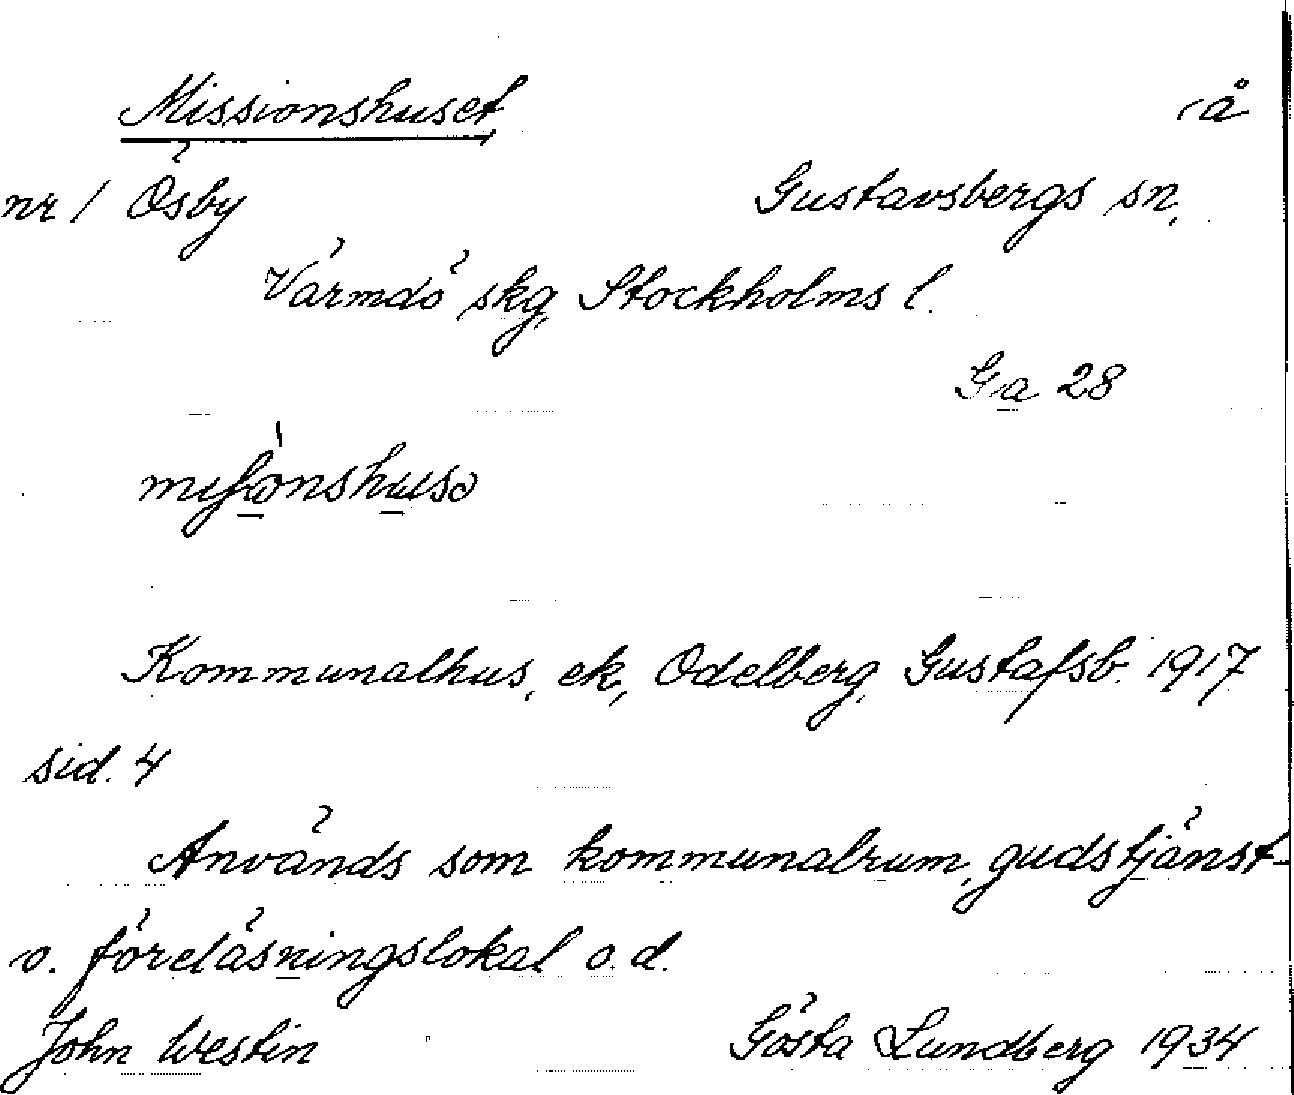 Missionshuset å
nr 1 Ösby Gustavsbergs sn,
Värmdö skg, Stockholms l.
Ga 28
Kommunalhus, ek, Odelberg, Gustafsb. 1917
sid. 4
Används som kommunalrum, gudstjänst-
o. föreläsningslokal o. d.
John Westin Gösta Lundberg 1934